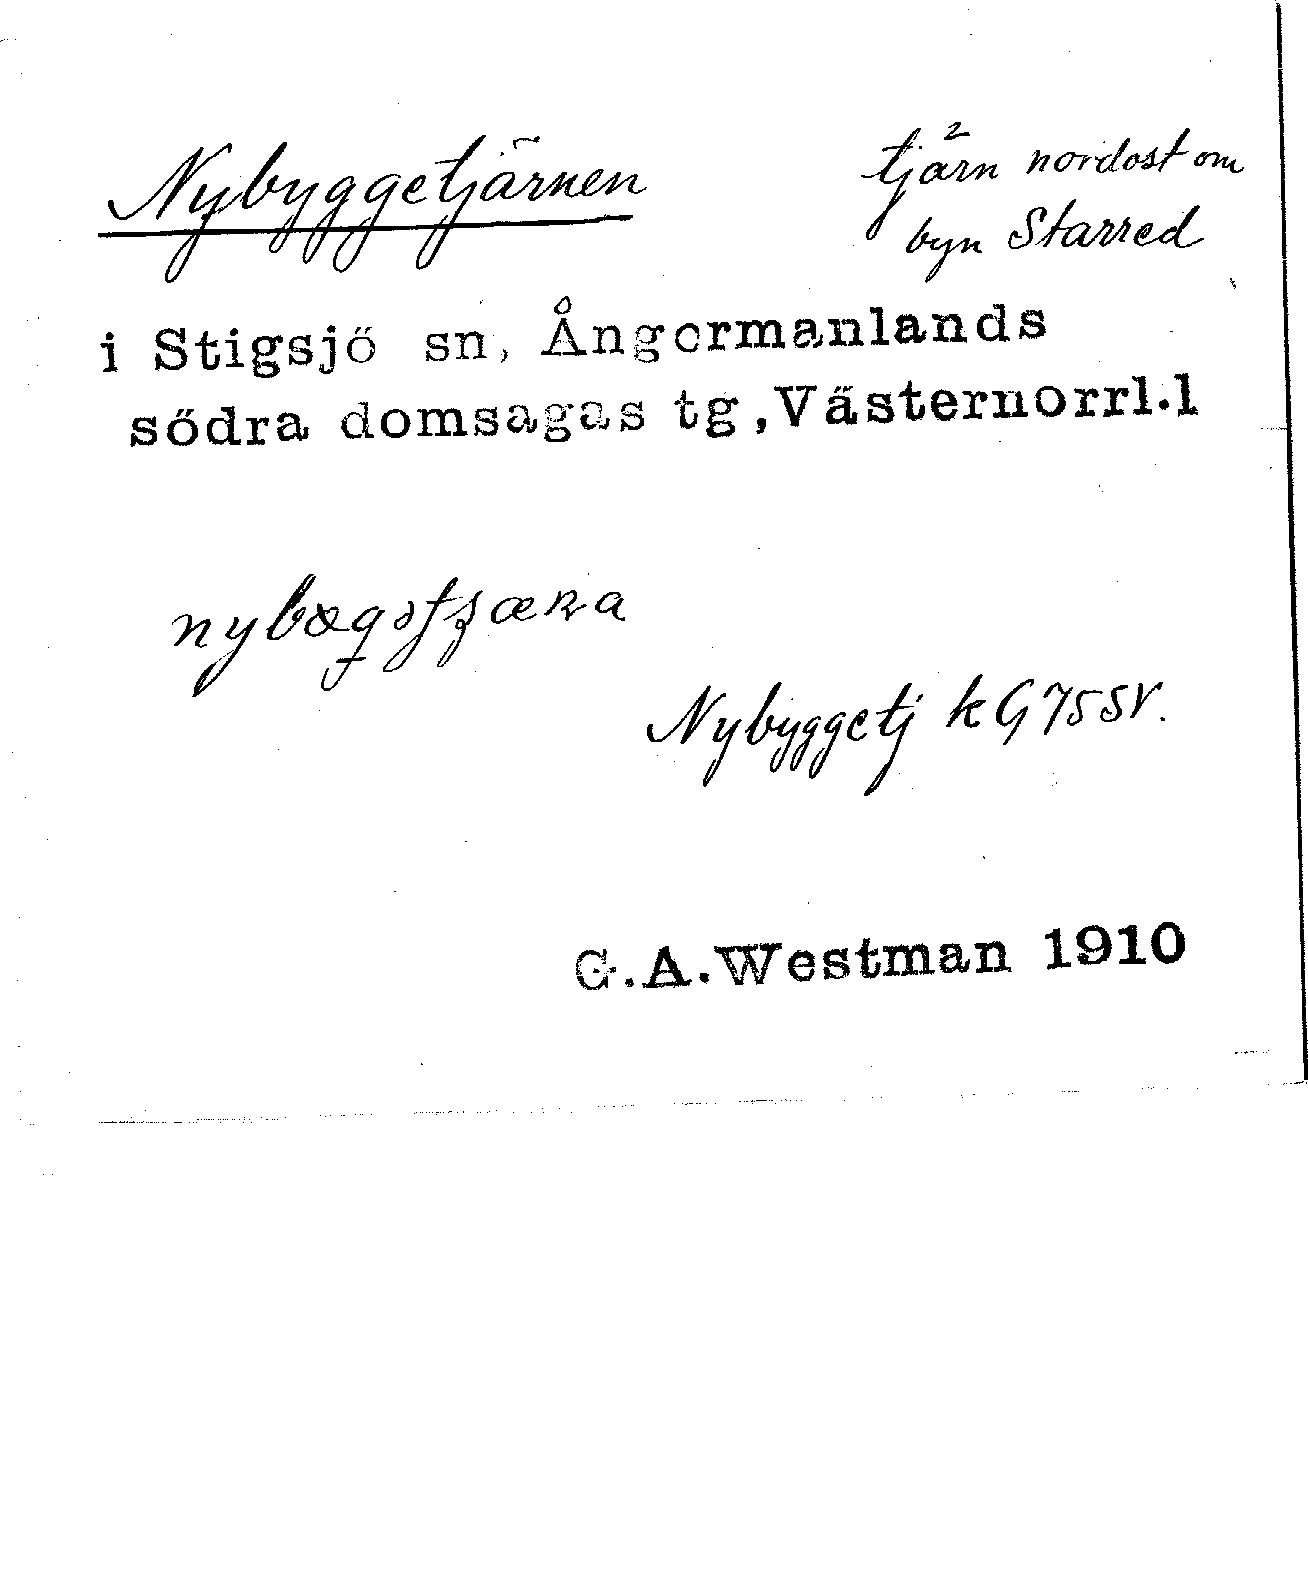 Nybyggetjärnen
tjärn nordost om
byn Starred
i Stigsjö sn, Ångermanlands
södra domsagas tg, Västernorrl.l
Nybyggetj kG 75 SV.
G.A.Westman 1910